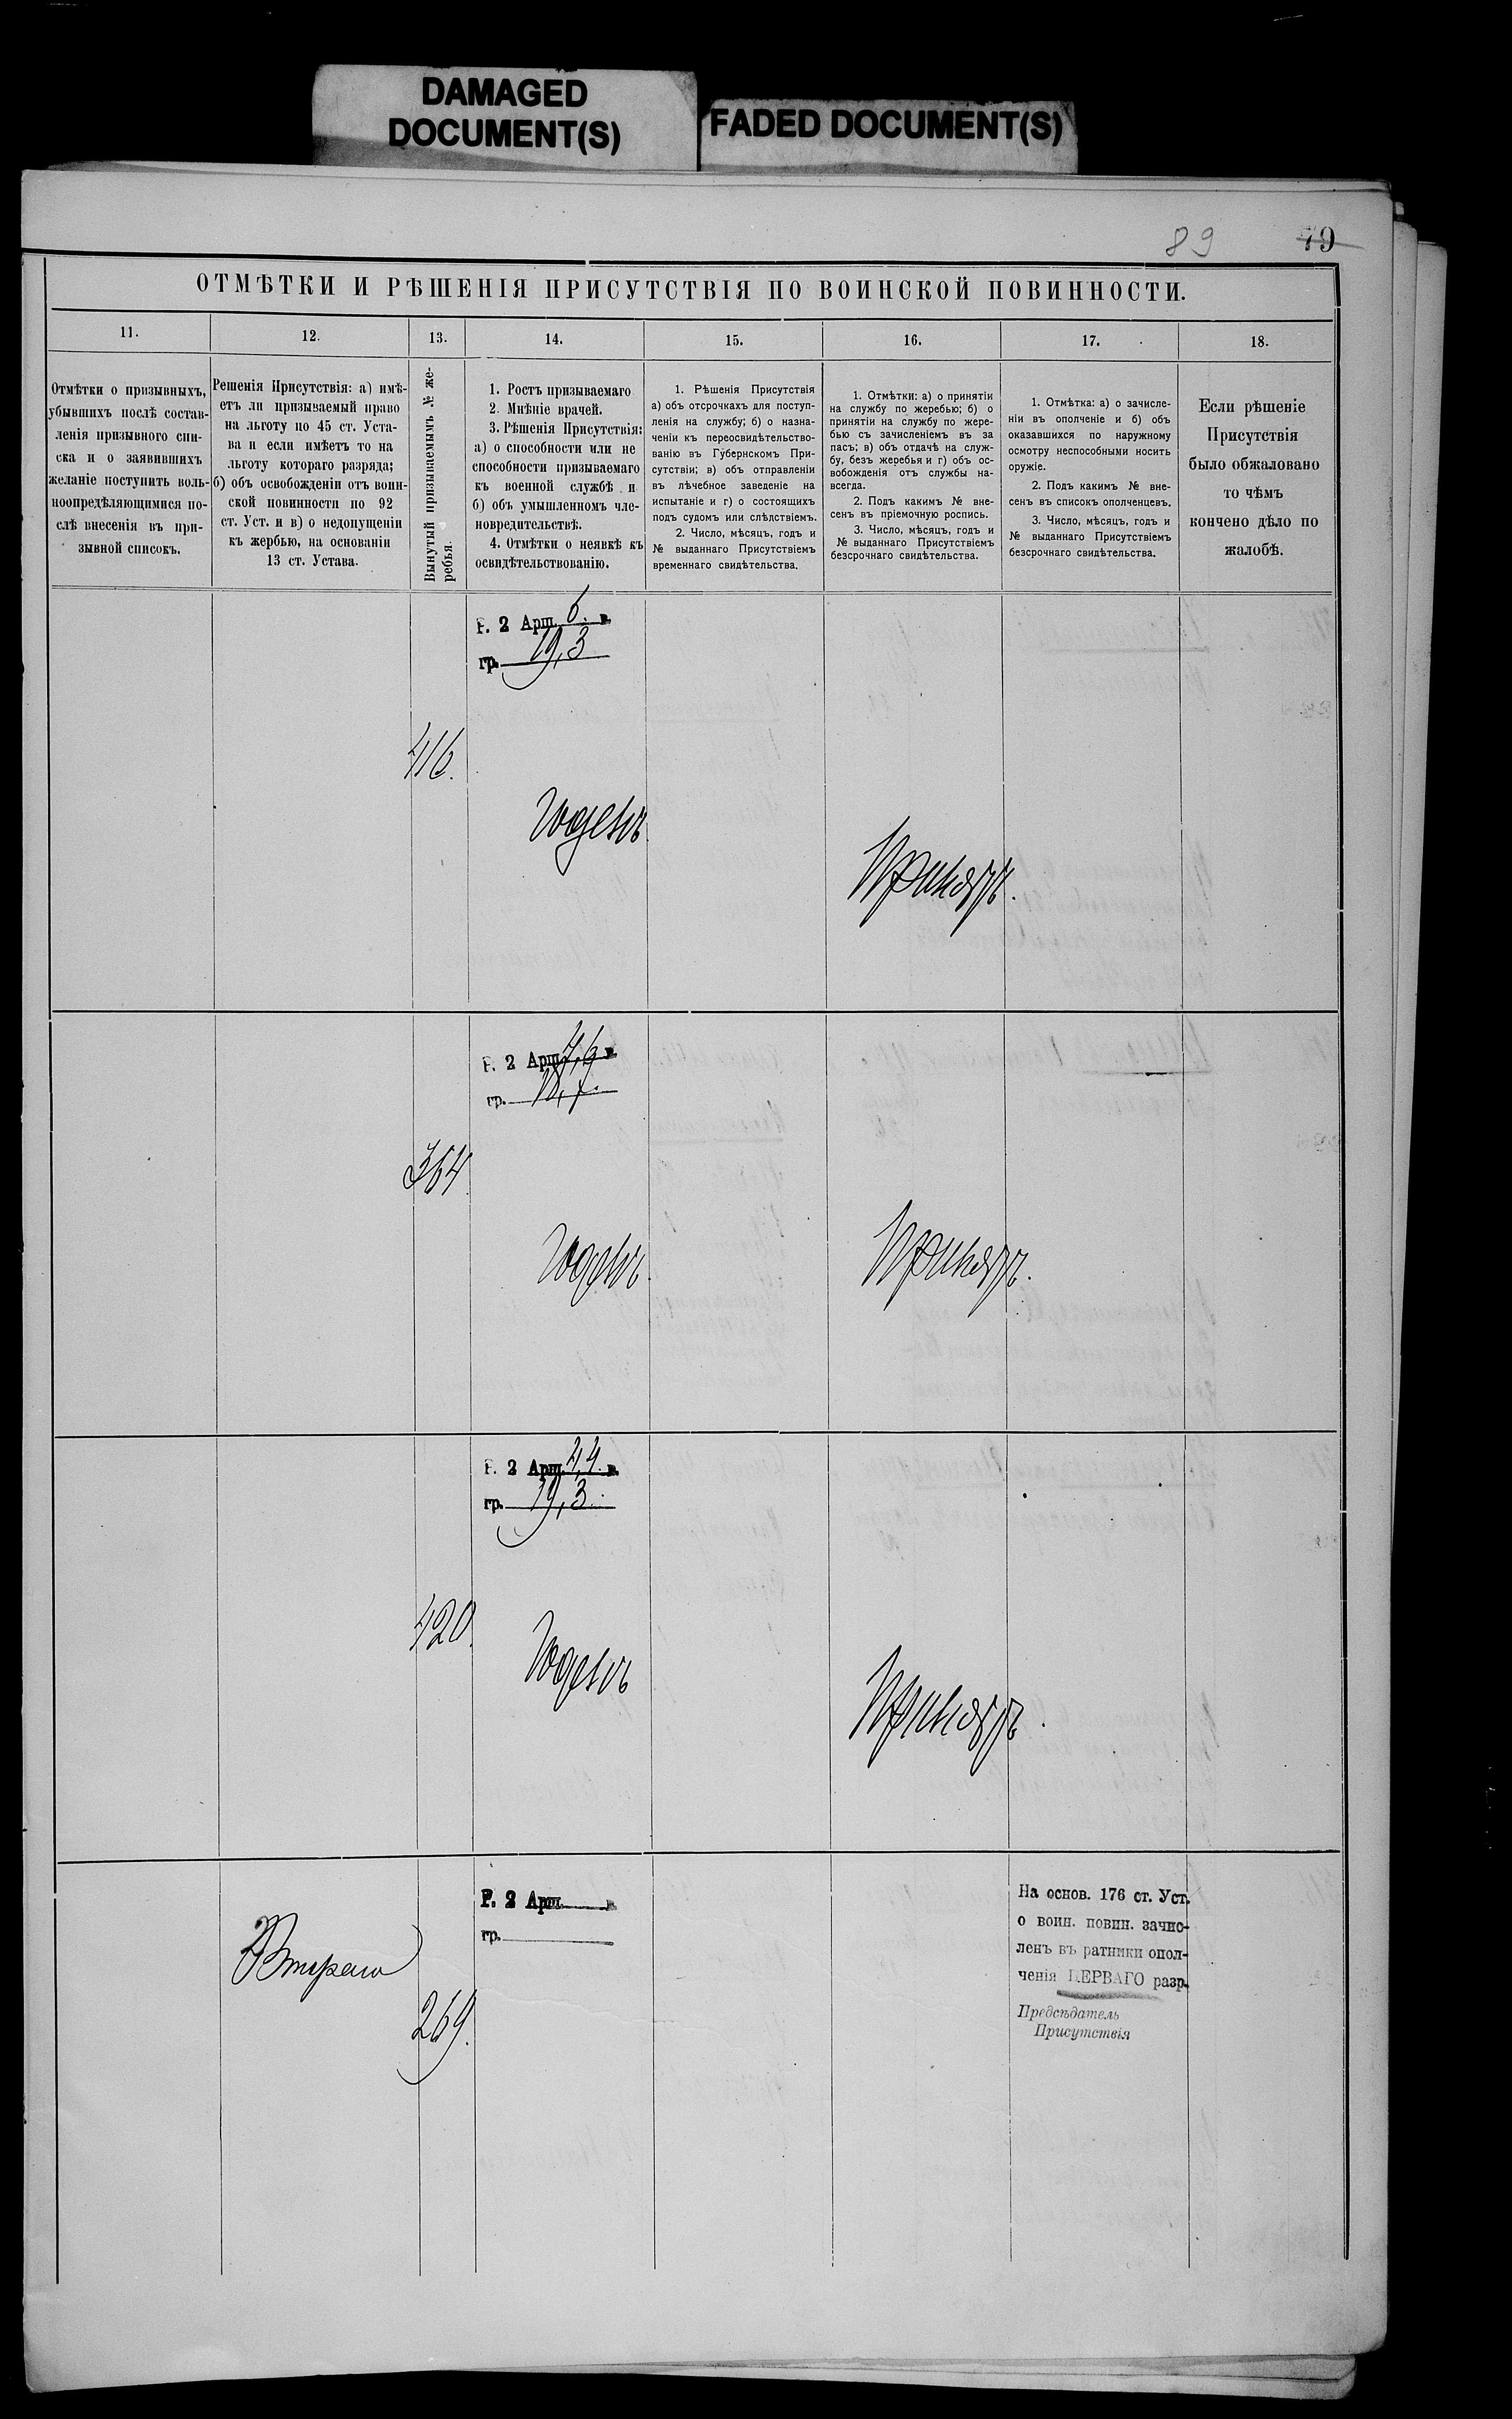 DAMAGED
DOCUMENT(S)
FADED DOCUMENT(S)
89
79
ОТМѢТКИ И РѢШЕНІЯ ПРИСУТСТВІЯ ПО ВОИНСКОЙ ПОВИННОСТИ.
11.
12.
13.
14.
15.
16.
17.
18.
Отмѣтки о призывныхъ,
убывшихъ послѣ состав-
ленія призывного спи-
ска и о заявившихъ
желаніе поступить воль-
ноопредѣляющимися по-
слѣ внесенія въ при-
зывной списокъ.
Решенія Присутствія: а) имѣ-
етъ ли призываемый право
на льготу по 45 ст. Уста-
ва и если имѣетъ то на
льготу котораго разряда;
б) объ освобожденіи отъ воин-
ской повинности по 92
ст. Уст. и в) о недопущеніи
къ жербью, на основаніи
13 ст. Устава.
Вынутый призываемымъ № же-
ребья.
1. Ростъ призываемаго
2. Мнѣніе врачей.
3. Рѣшенія Присутствія:
а) о способности или не
способности призываемаго
къ военной службѣ и
б) объ умышленномъ чле-
новредительствѣ.
4. Отмѣтки о неявкѣ къ
освидѣтельствованію.
1. Рѣшенія Присутствія
а) объ отсрочкахъ для поступ-
ленія на службу; б) о назна-
ченіи къ переосвидѣтельство-
ванію въ Губернскомъ При-
сутствіи; в) объ отправленіи
въ лѣчебное заведеніе на
испытаніе и г) о состоящихъ
подъ судомъ или слѣдствіемъ.
2. Число, мѣсяцъ, годъ и
№ выданнаго Присутствіемъ
временнаго свидѣтельства.
1. Отмѣтки: а) о принятіи
на службу по жеребью; б) о
принятіи на службу по жере-
бью съ зачисленіемъ въ за
пасъ; в) объ отдачѣ на служ-
бу, безъ жеребья и г) объ ос-
вобожденія отъ службы на-
всегда.
2. Подъ какимъ № вне-
сенъ въ пріемочную роспись.
3. Число, мѣсяцъ, годъ и
№ выданнаго Присутствіемъ
безсрочнаго свидѣтельства.
1. Отмѣтка: а) о зачисле-
ніи въ ополченіе и б) объ
оказавшихся по наружному
осмотру неспособными носить
оружіе.
2. Подъ какимъ № вне-
сенъ въ списокъ ополченцевъ.
3. Число, мѣсяцъ, годъ и
№ выданнаго Присутствіемъ
безсрочнаго свидѣтельства.
Если рѣшеніе
Присутствія
было обжаловано
то чѣмъ
кончено дѣло по
жалобѣ.
Р. 2 Арш. 6. в.
гр. 19,3
416.
Годенъ
Принятъ.
Р. 2 Арш. в.
гр.
364
Годенъ.
Принятъ.
Р. 2 Арш. 4,4. в.
гр. 19,3.
420.
Годенъ
Принятъ.
Р. 2 Арш. в
гр.
Втораго
269.
На основ. 176 ст. Уст.
о воин. повин. зачис-
ленъ въ ратники опол-
ченія ПЕРВАГО разр.
Предсѣдатель
Присутствія